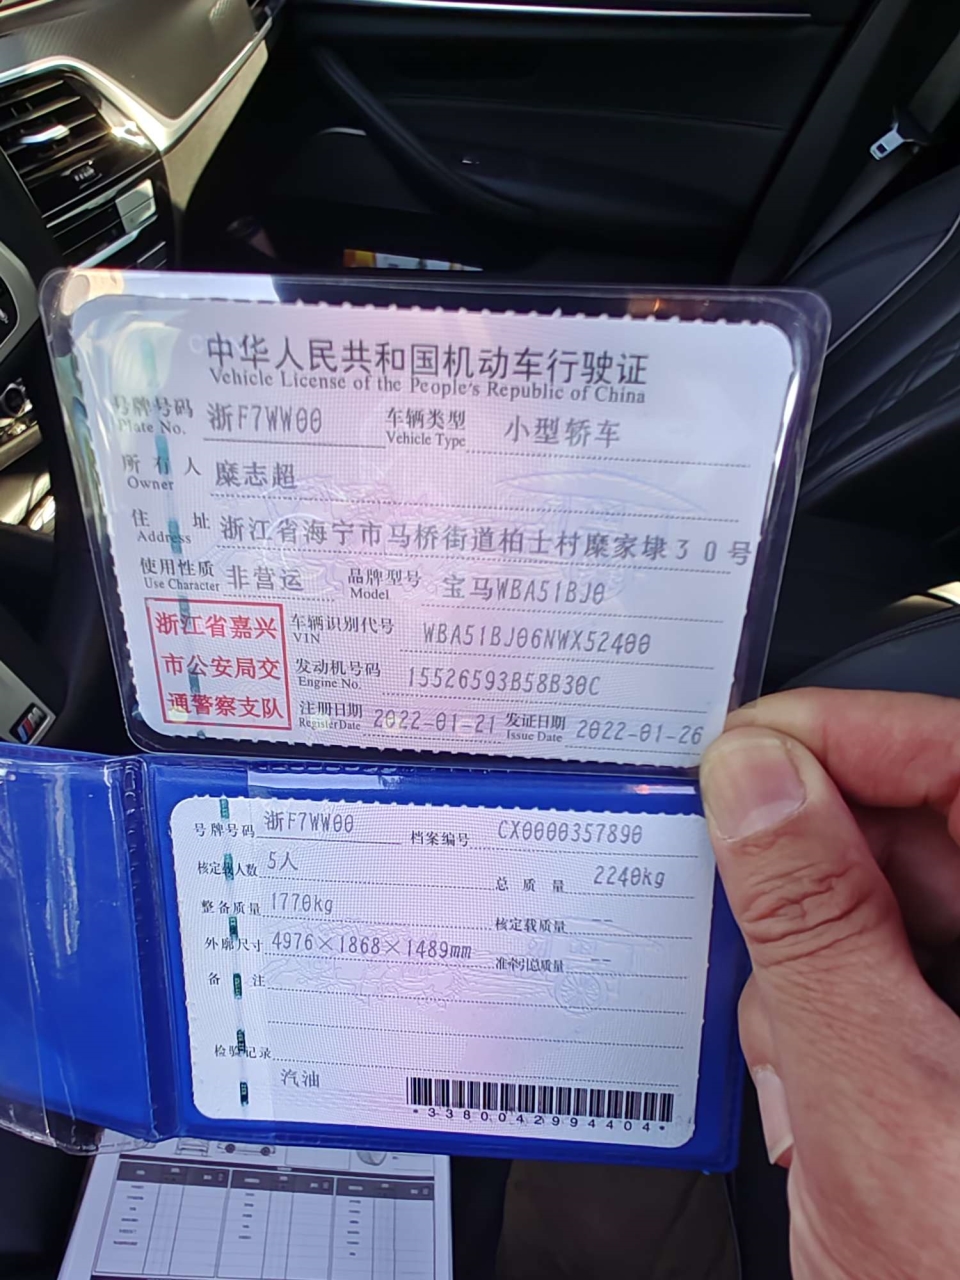 中华人民共和国机动车行驶证
Vehicle License of the People's Republic of China
号牌号码 浙F7WW00 车辆类型 小型轿车
Plate No. Vehicle Type
所有人 糜志超
Owner
住址 浙江省海宁市马桥街道柏士村糜家埭30号
Address
使用性质 非营运 品牌型号 宝马WBA51BJ0
Use Character Model
浙江省嘉兴
市公安局交
通警察支队
车辆识别代号 WBA51BJ06NWX52400
VIN
发动机号码 15526593B58B30C
Engine No.
注册日期 2022-01-21 发证日期 2022-01-26
Register Date Issue Date
号牌号码 浙F7WW00 档案编号 CX0000357890
核定载人数 5人 总质量 2240kg
整备质量 1770kg 核定载质量 --
外廓尺寸 4976×1868×1489mm 准牵引总质量 --
备注
检验记录
汽油
*3380042994404*